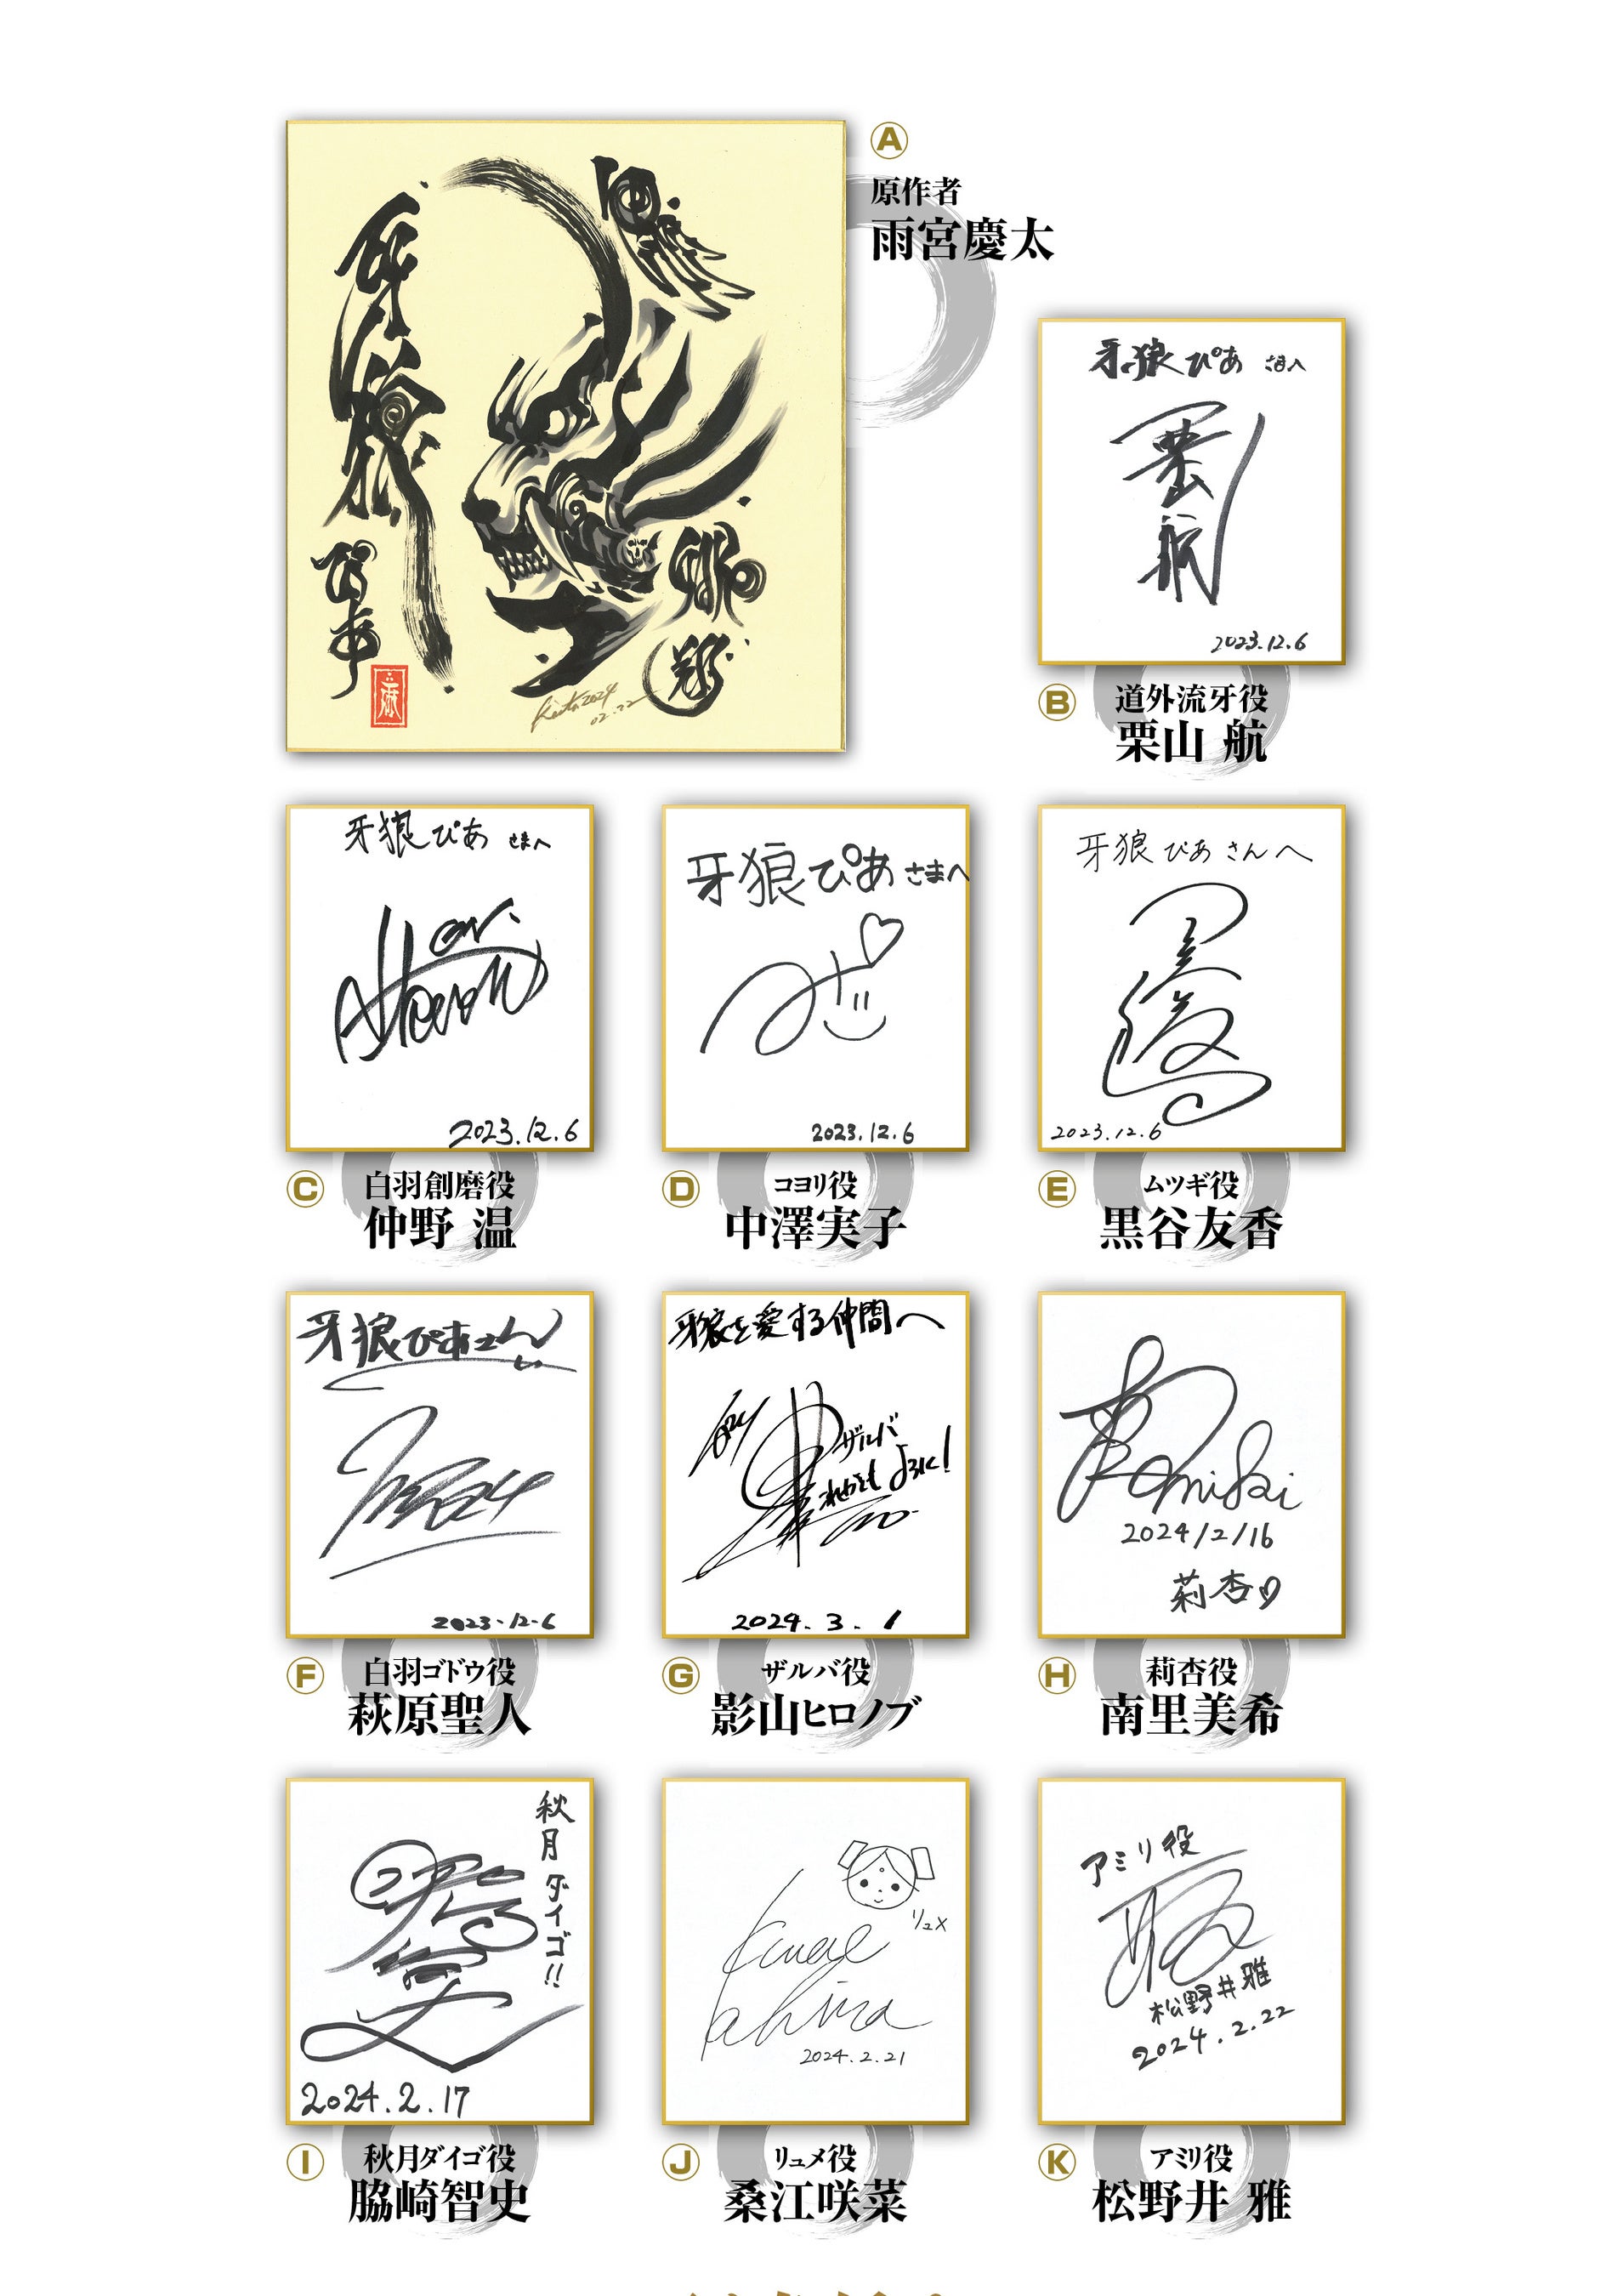 A
原作者
雨宮慶太
牙狼
ぴあ
Keita 2024
02.22
牙狼ぴあ さまへ
栗山航
2023.12.6
B
道外流牙役
栗山 航
牙狼ぴあ さまへ
2023.12.6
C
白羽創磨役
仲野 温
牙狼ぴあ さまへ
2023.12.6
D
コヨリ役
中澤実子
牙狼ぴあさんへ
2023.12.6
E
ムツギ役
黒谷友香
牙狼ぴあさんへ
2023.12.6
F
白羽ゴドウ役
萩原聖人
牙狼を愛する仲間へ
ザルバ
よろしく!
2024.3.1
G
ザルバ役
影山ヒロノブ
2024/2/16
莉杏♡
H
莉杏役
南里美希
秋月ダイゴ!!
2024.2.17
I
秋月ダイゴ役
脇崎智史
リュメ
2024.2.21
J
リュメ役
桑江咲菜
アミリ役
松野井雅
2024.2.22
K
アミリ役
松野井 雅